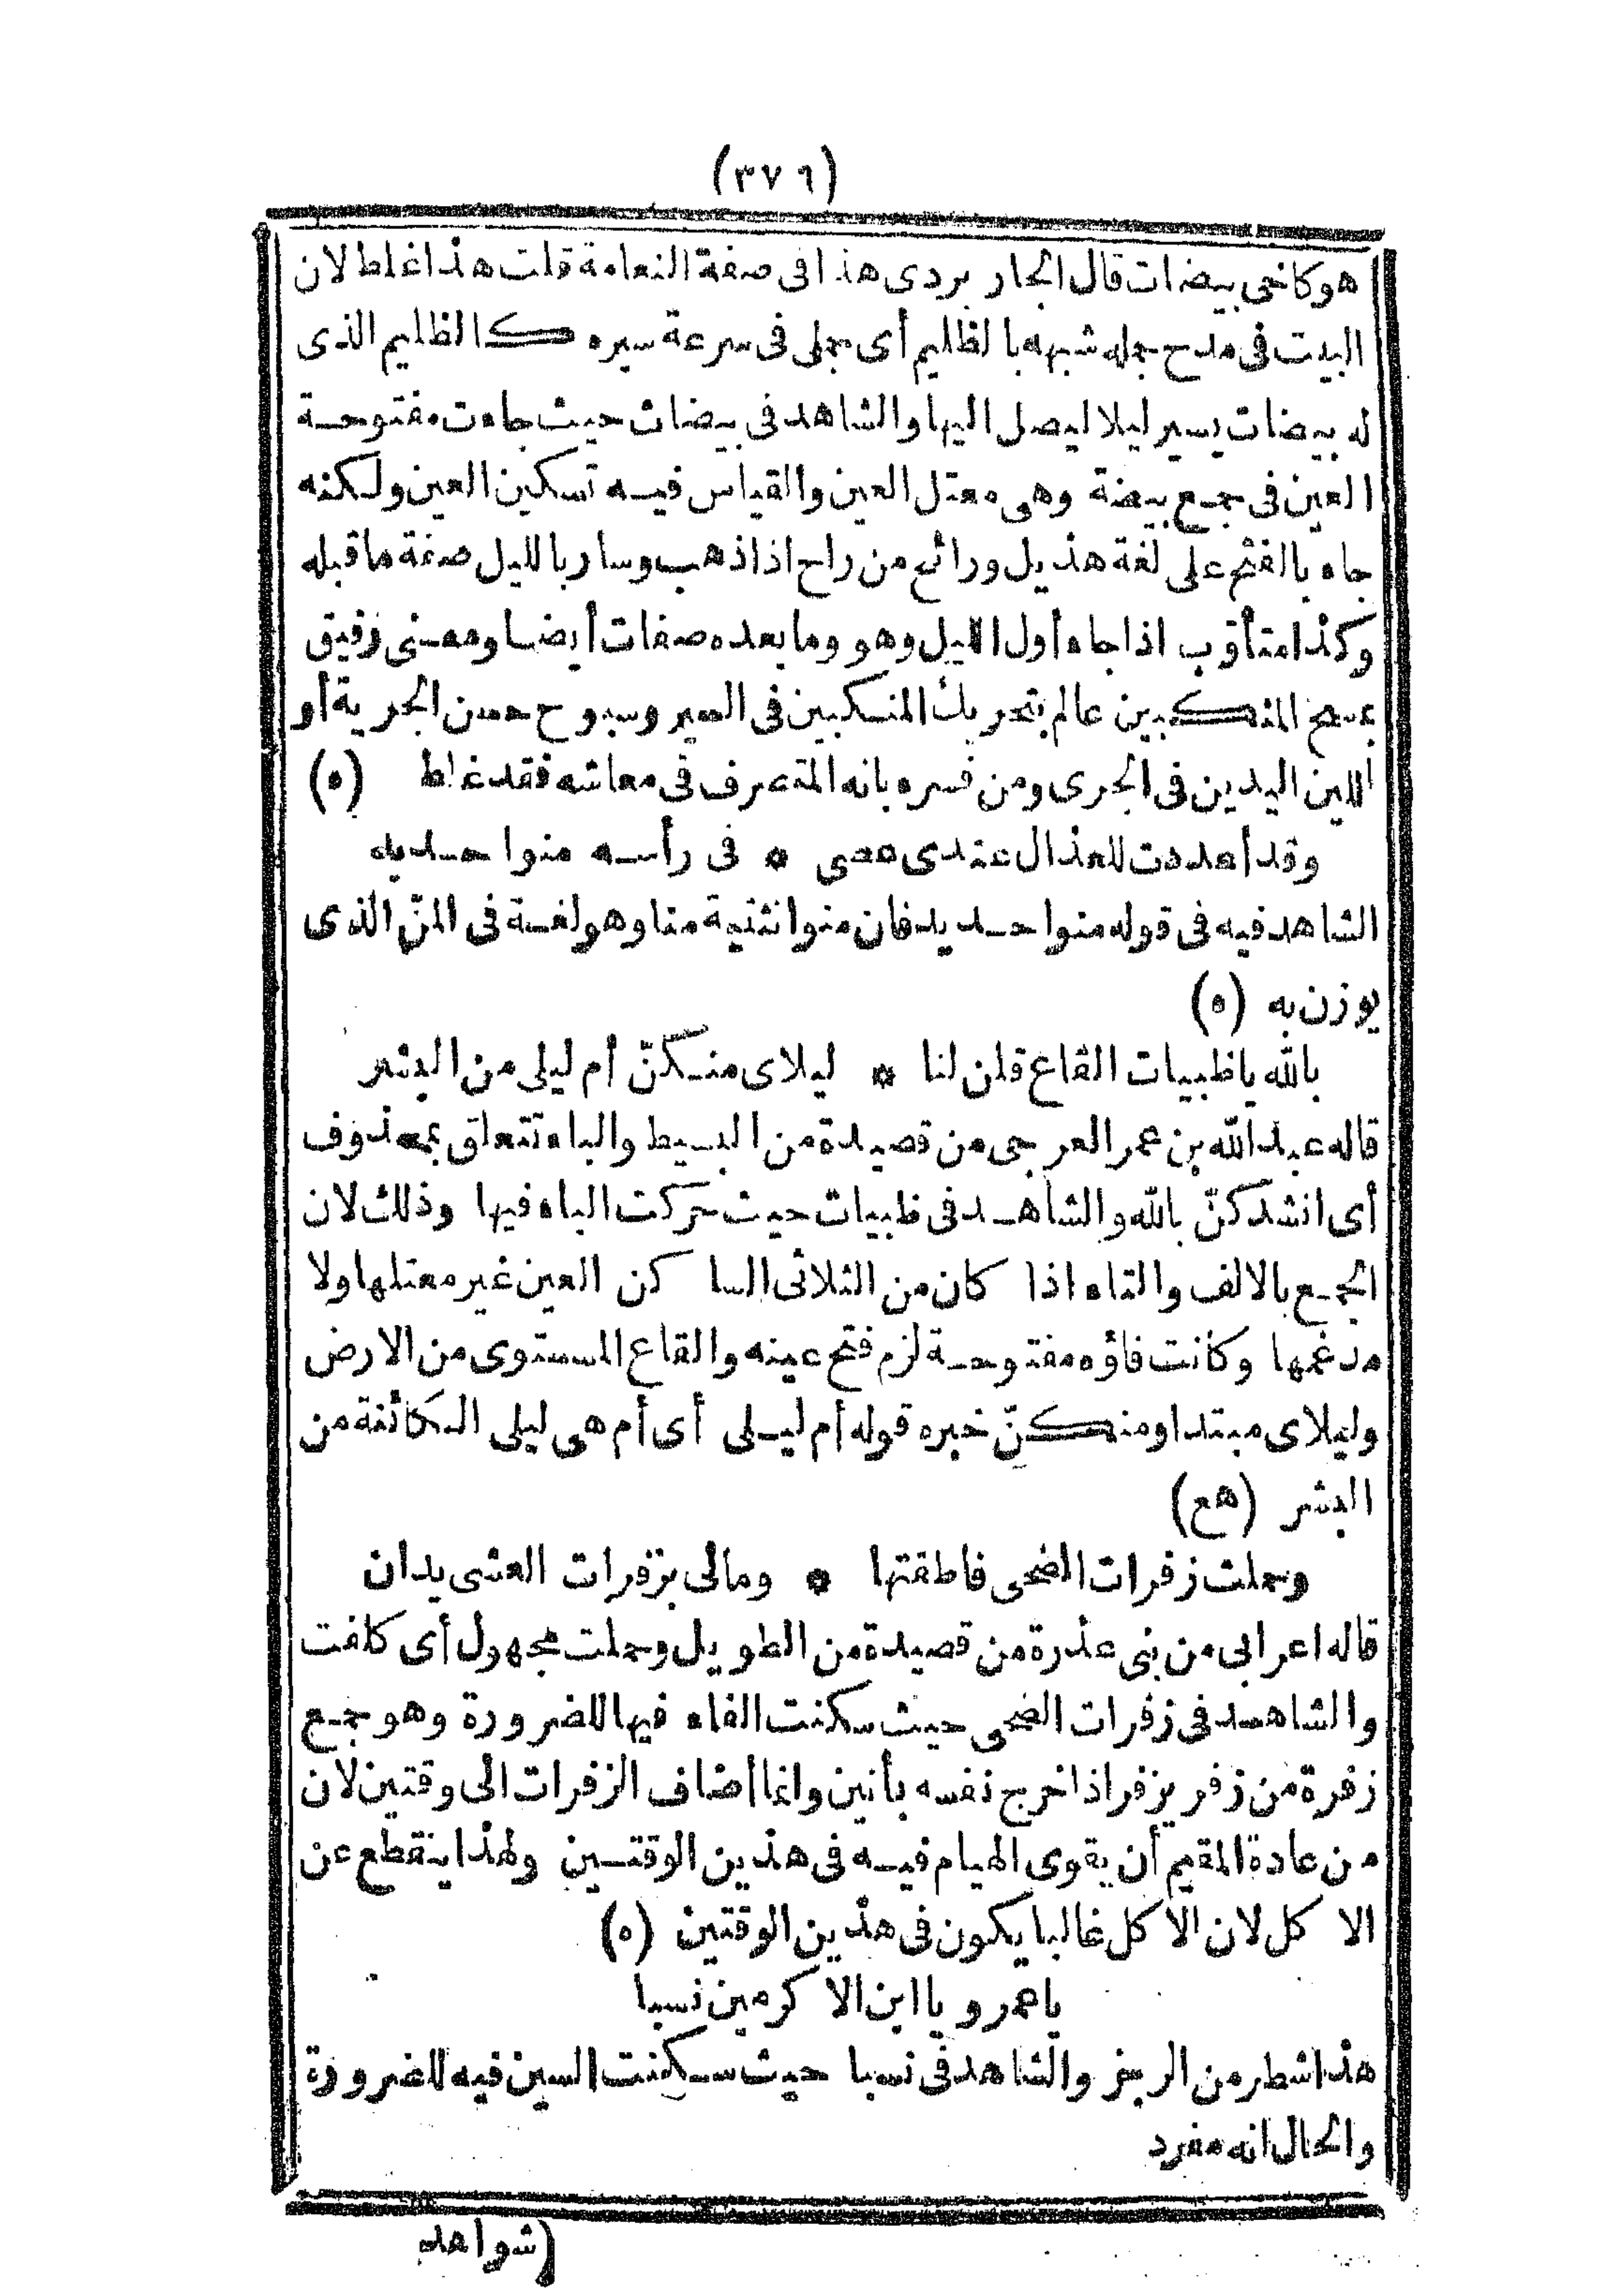 (٣٧٦)
هو كاخى بيضات قال الجار بردى هذا فى صفة النعامة قلت هذا غلط لان
البيت فى مدح جمله شبهه بالظليم أى جملى فى سرعة سيره كالظليم الذى
له بيضات يسير ليلا ليصل اليها والشاهد فى بيضات حيث جاءت مفتوحة
العين فى جمع بيضة وهى معتل العين والقياس فيه تسكين العين ولكنه
جاء بالفتح على لغة هذيل ورائح من راح اذا ذهب وسار بالليل صفة ما قبله
وكذا متأوّب اذا جاء أول الليل وهو وما بعده صفات أيضا ومعنى رفيق
بمسح المنكبين عالم بتحريك المنكبين فى السير وسبوح حسن الجرية أو
اللين اليدين فى الجرى ومن فسره بانه المتصرف فى معاشه فقد غلط (ه)
وقد أعددت للعذال عندى عصى * فى رأسه منوا حديه
الشاهد فيه فى قوله منوا حديد فان منوا تثنية منا وهو لغة فى المنّ الذى
يوزن به (ه)
بالله يا ظبيات القاع قلن لنا * ليلاى منكنّ أم ليلى من البشر
قاله عبد الله بن عمر العرجى من قصيدة من البسيط والباء تتعلق بمحذوف
أى انشدكنّ بالله والشاهد فى ظبيات حيث حركت الباء فيها وذلك لان
الجمع بالالف والتاء اذا كان من الثلاثى الساكن العين غير معتلها ولا
مدغمها وكانت فاؤه مفتوحة لزم فتح عينه والقاع المستوى من الارض
وليلاى مبتدا ومنكنّ خبره قوله أم ليلى أى أم هى ليلى الكائنة من
البشر (هع)
وحملت زفرات الضحى فاطقتها * ومالى بزفرات العشى يدان
قاله اعرابى من بنى عذرة من قصيدة من الطويل وحملت مجهول أى كلفت
والشاهد فى زفرات الضحى حيث سكنت الفاء فيها للضرورة وهو جمع
زفرة من زفر يزفر اذا خرج نفسه بأنين وانما أضاف الزفرات الى وقتين لان
من عادة المقيم أن يقوى الهيام فيه فى هذين الوقتين ولهذا ينقطع عن
الاكل لان الاكل غالبا يكون فى هذين الوقتين (ه)
يا عمرو يا ابن الاكرمين نسبا
هذا شطر من الرجز والشاهد فى نسبا حيث سكنت السين فيه للضرورة
والحال انه مفرد
(شواهد